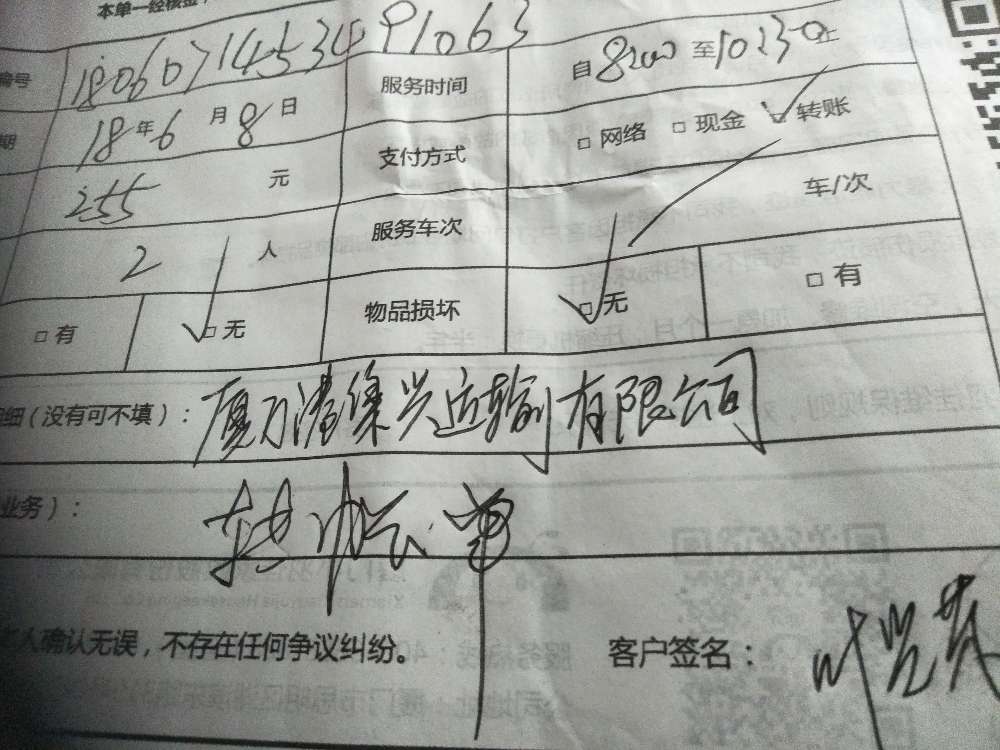 本单一经核金,
编号 1806071453491063 服务时间 自8:00至10:30止
期 18年6月8日 支付方式 □网络 □现金 ☑转账
255元 服务车次 车/次
2人
□有 ☑无 物品损坏 ☑无 □有
细(没有可不填): 厦门港集兴运输有限公司
业务): 转账单
人确认无误,不存在任何争议纠纷。 客户签名: